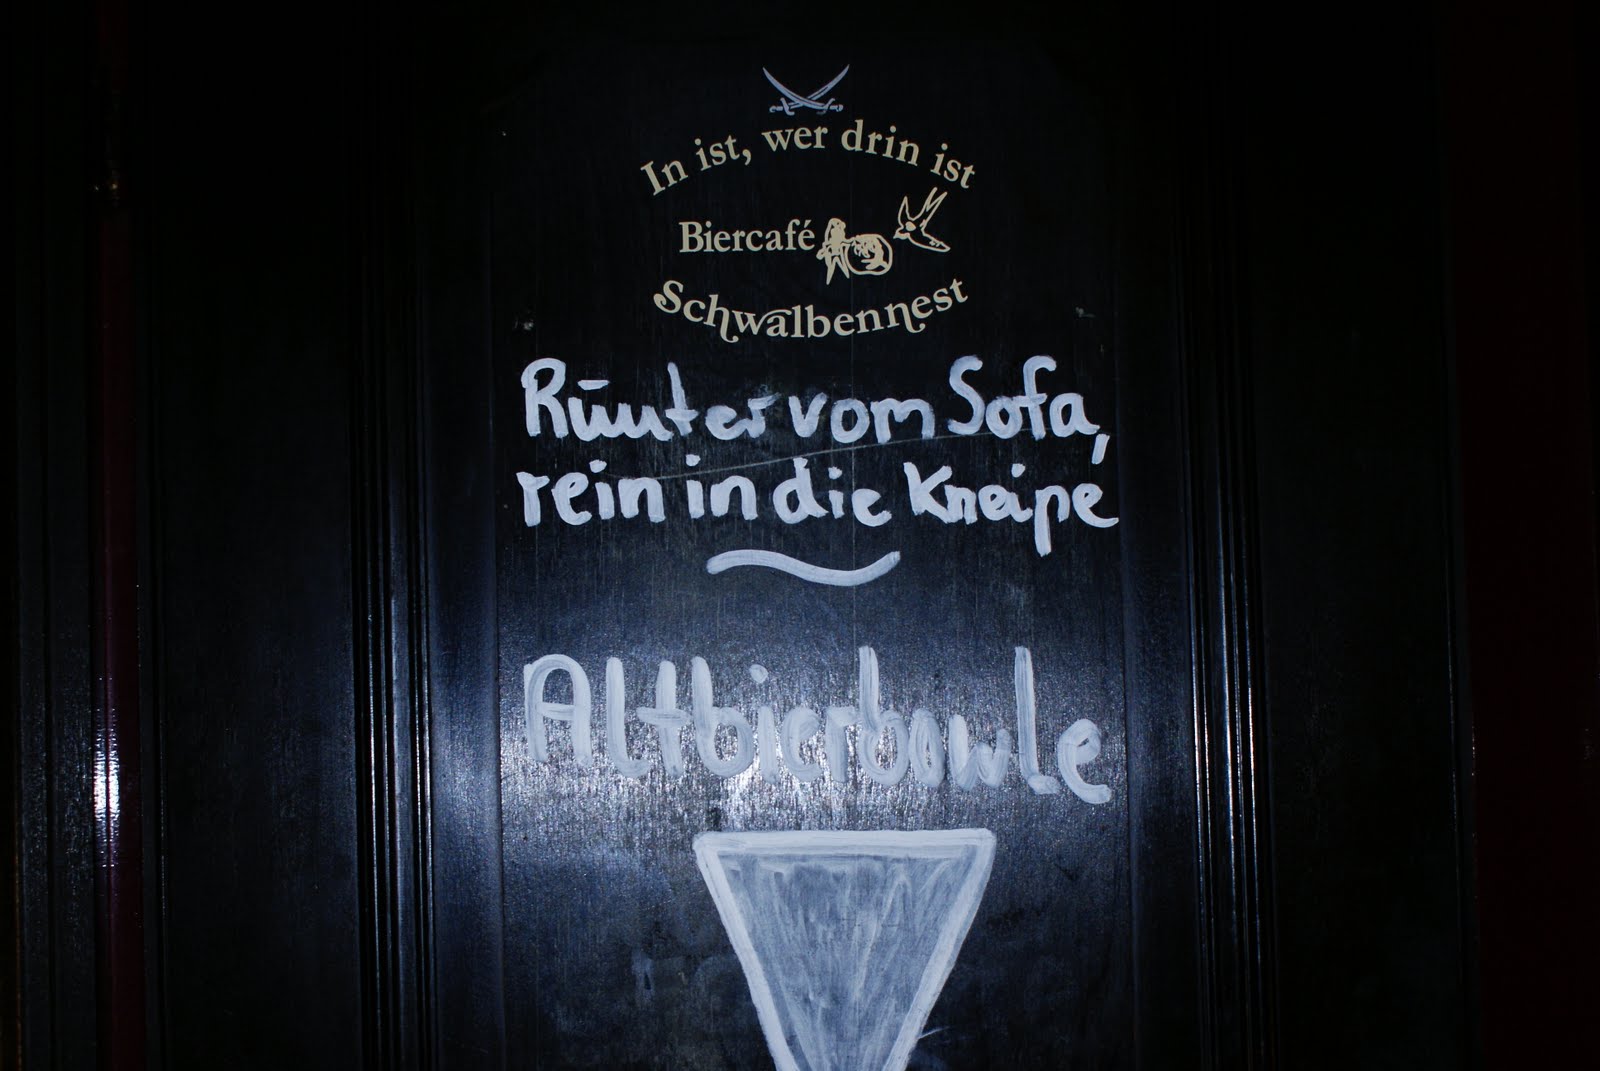 In ist, wer drin ist
Biercafé
Schwalbennest
Runter vom Sofa,
rein in die Kneipe
Altbierbowle